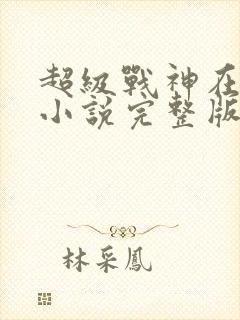 超級戰神在
小說完整版
林采鳳